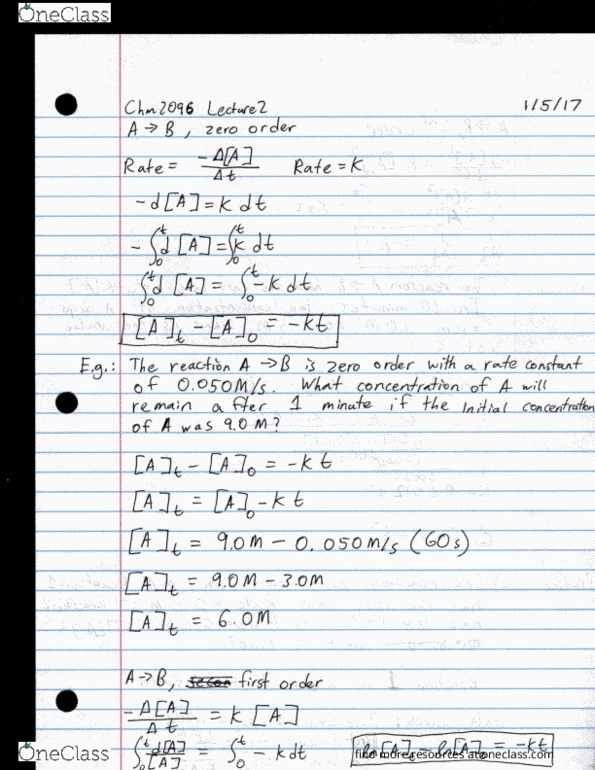 OneClass
Chm2096 Lecture2 1/5/17
A → B , zero order
Rate = -Δ[A]/Δt Rate = k
-d[A] = k dt
-∫₀ᵗ d[A] = ∫₀ᵗ k dt
∫₀ᵗ d[A] = ∫₀ᵗ -k dt
[A]ₜ - [A]₀ = -kt
E.g.: The reaction A → B is zero order with a rate constant
of 0.050M/s. What concentration of A will
remain after 1 minute if the initial concentration
of A was 9.0 M?
[A]ₜ - [A]₀ = -kt
[A]ₜ = [A]₀ - kt
[A]ₜ = 9.0M - 0.050M/s (60s)
[A]ₜ = 9.0M - 3.0M
[A]ₜ = 6.0M
A → B, first order
-Δ[A]/Δt = k [A]
∫₀ᵗ d[A]/[A] = ∫₀ᵗ -k dt ln[A]ₜ - ln[A]₀ = -kt
OneClass find more resources at oneclass.com